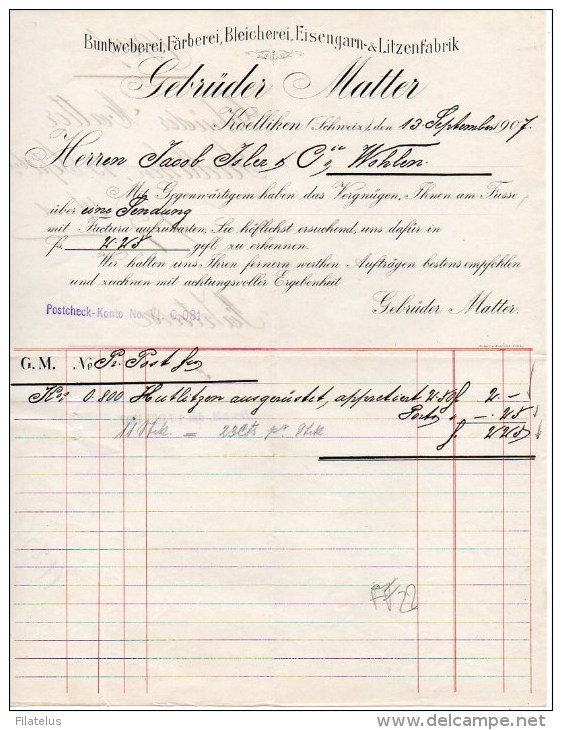 Buntweberei, Färberei, Bleicherei, Eisengarn- & Litzenfabrik
Gebrüder Matter
Koelliken (Schweiz), den 13. September 1907.
Herren Jacob Isler & Cie, Wohlen.
Mit Gegenwärtigem haben das Vergnügen, Ihnen am Fusse,
über eine Sendung
mit Factura aufzuwarten, Sie höflichst ersuchend, uns dafür in
fs. 2.25 gefl. zu erkennen.
Wir halten uns Ihren fernern werthen Aufträgen bestens empfohlen
und zeichnen mit achtungsvoller Ergebenheit
Gebrüder Matter.
Postcheck-Konto No. VI 0,081
G. M. No Pr. Post
Ko 0.800 Hutlitzen ausgerüstet, appretiert 2.50 f. 2.-
Porto " -.25
f. 2.25
11 Stk. = 23 Cts pr Stk
FF22
Filatelus
www.delcampe.net